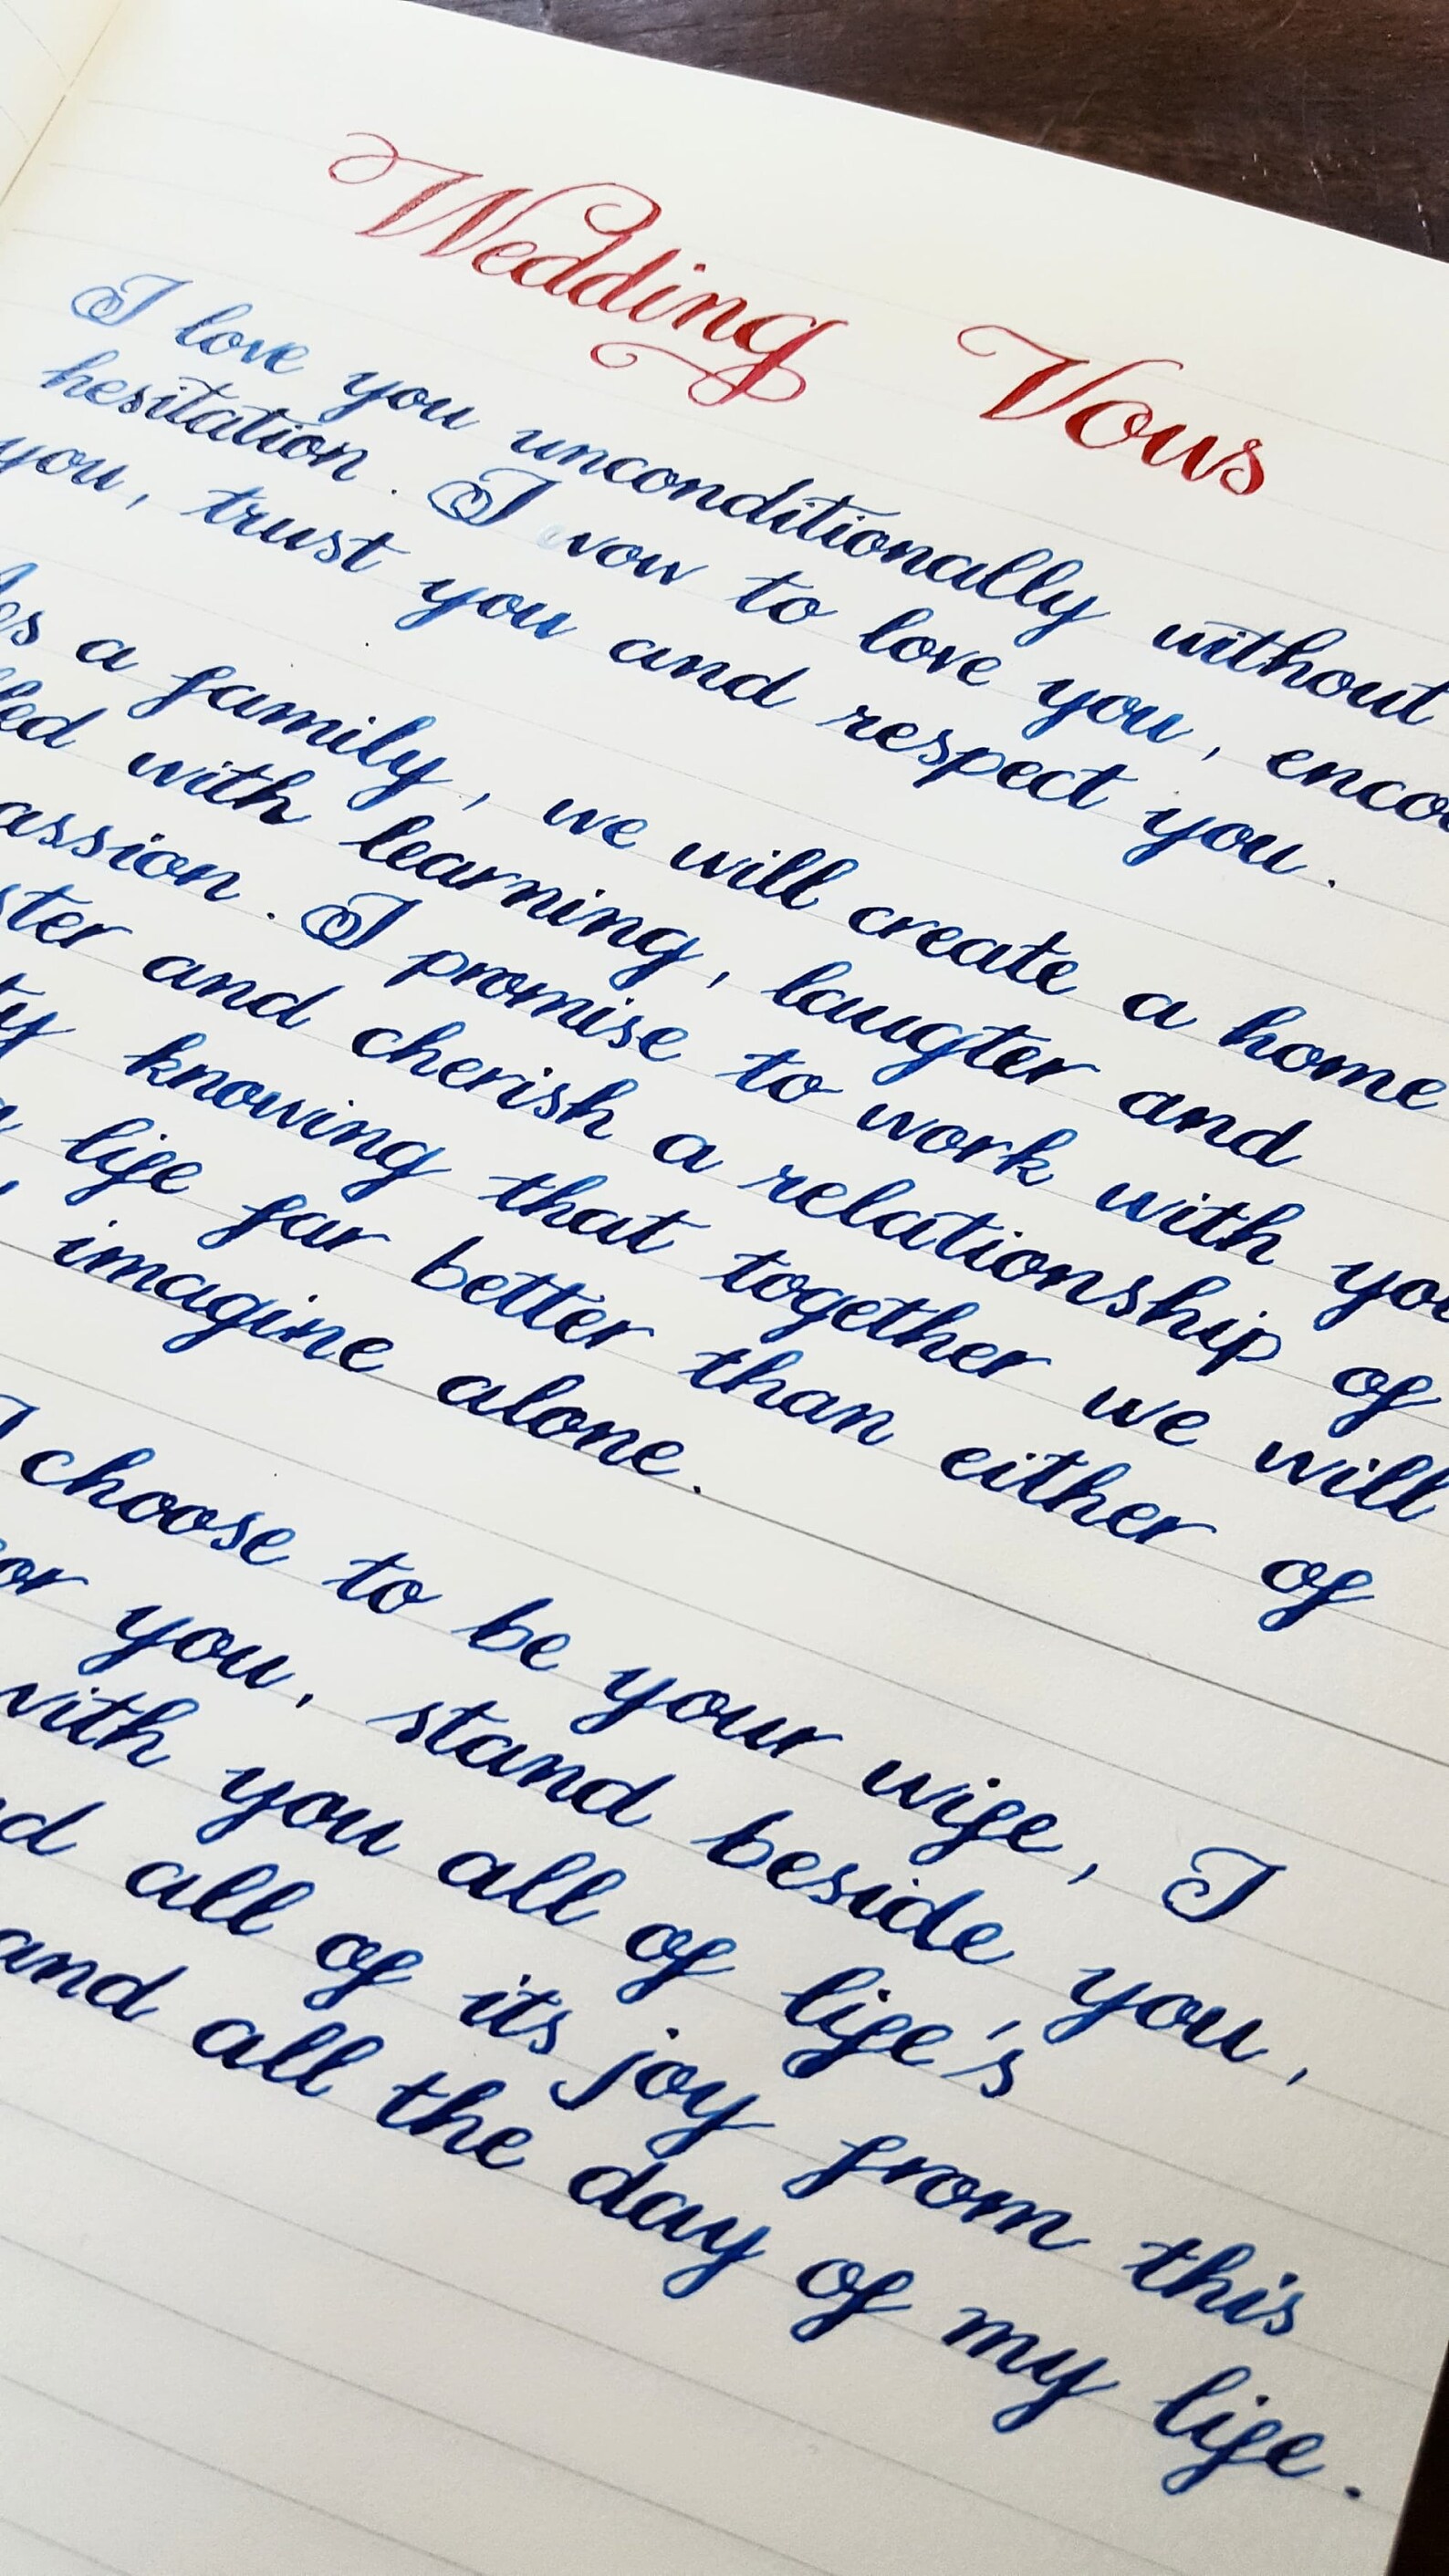 Wedding Vows
I love you unconditionally without
hesitation. I vow to love you,
you, trust you and respect you.
a family, we will create a home
with learning, laugter and
I promise to work with
and cherish a relationship of
knowing that together we will
life far better than either of
imagine alone.
I choose to be your wife, I
you, stand beside you,
with you all of life's
all of its joy from this
and all the day of my life.